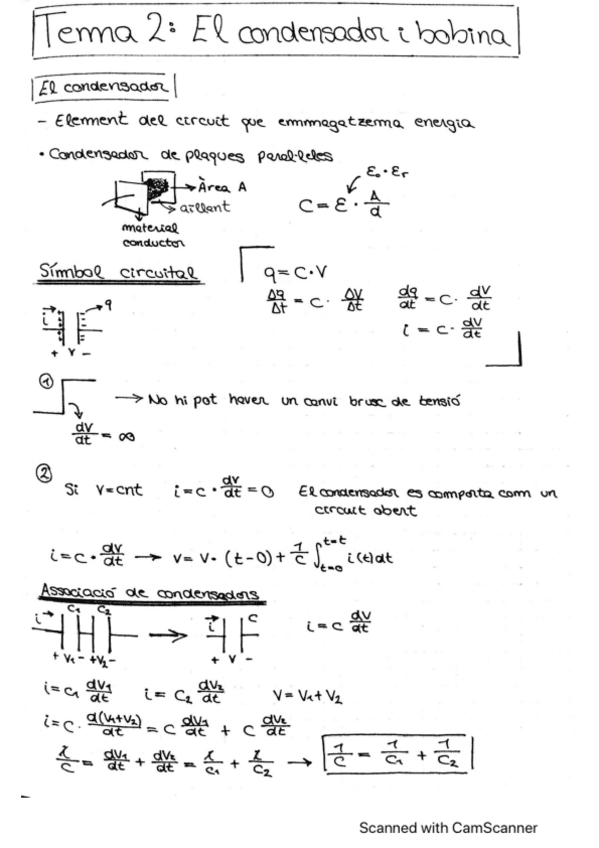 Tema 2: El condensador i bobina
El condensador
- Element del circuit que emmagatzema energia
• Condensador de plaques paral·leles
Àrea A
aïllant
material
conductor
ε₀·εᵣ
C = ε · A/d
Símbol circuital
q = C·V
Δq/Δt = C · ΔV/Δt
dq/dt = C · dV/dt
i = C · dV/dt
i q
+ V -
①
→ No hi pot haver un canvi brusc de tensió
dV/dt = ∞
②
Si V=cnt i = C · dV/dt = 0 El condensador es comporta com un
circuit obert
i = C · dV/dt → V = V · (t-0) + 1/C ∫ t=0 t=t i(t)dt
Associació de condensadors
i C₁ C₂ → i C
i = C dV/dt
+ V₁ - + V₂ - + V -
i = C₁ dV₁/dt i = C₂ dV₂/dt V = V₁ + V₂
i = C · d(V₁+V₂)/dt = C dV₁/dt + C dV₂/dt
i/C = dV₁/dt + dV₂/dt = i/C₁ + i/C₂ → 1/C = 1/C₁ + 1/C₂
Scanned with CamScanner